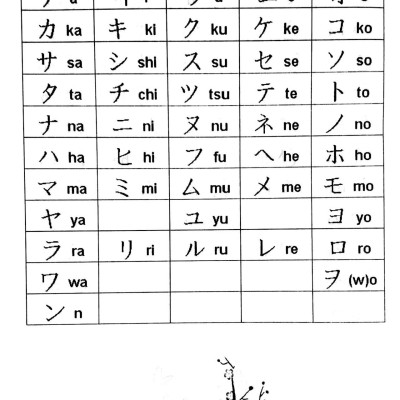 カ ka キ ki ク ku ケ ke コ ko
サ sa シ shi ス su セ se ソ so
タ ta チ chi ツ tsu テ te ト to
ナ na ニ ni ヌ nu ネ ne ノ no
ハ ha ヒ hi フ fu ヘ he ホ ho
マ ma ミ mi ム mu メ me モ mo
ヤ ya ユ yu ヨ yo
ラ ra リ ri ル ru レ re ロ ro
ワ wa ヲ (w)o
ン n